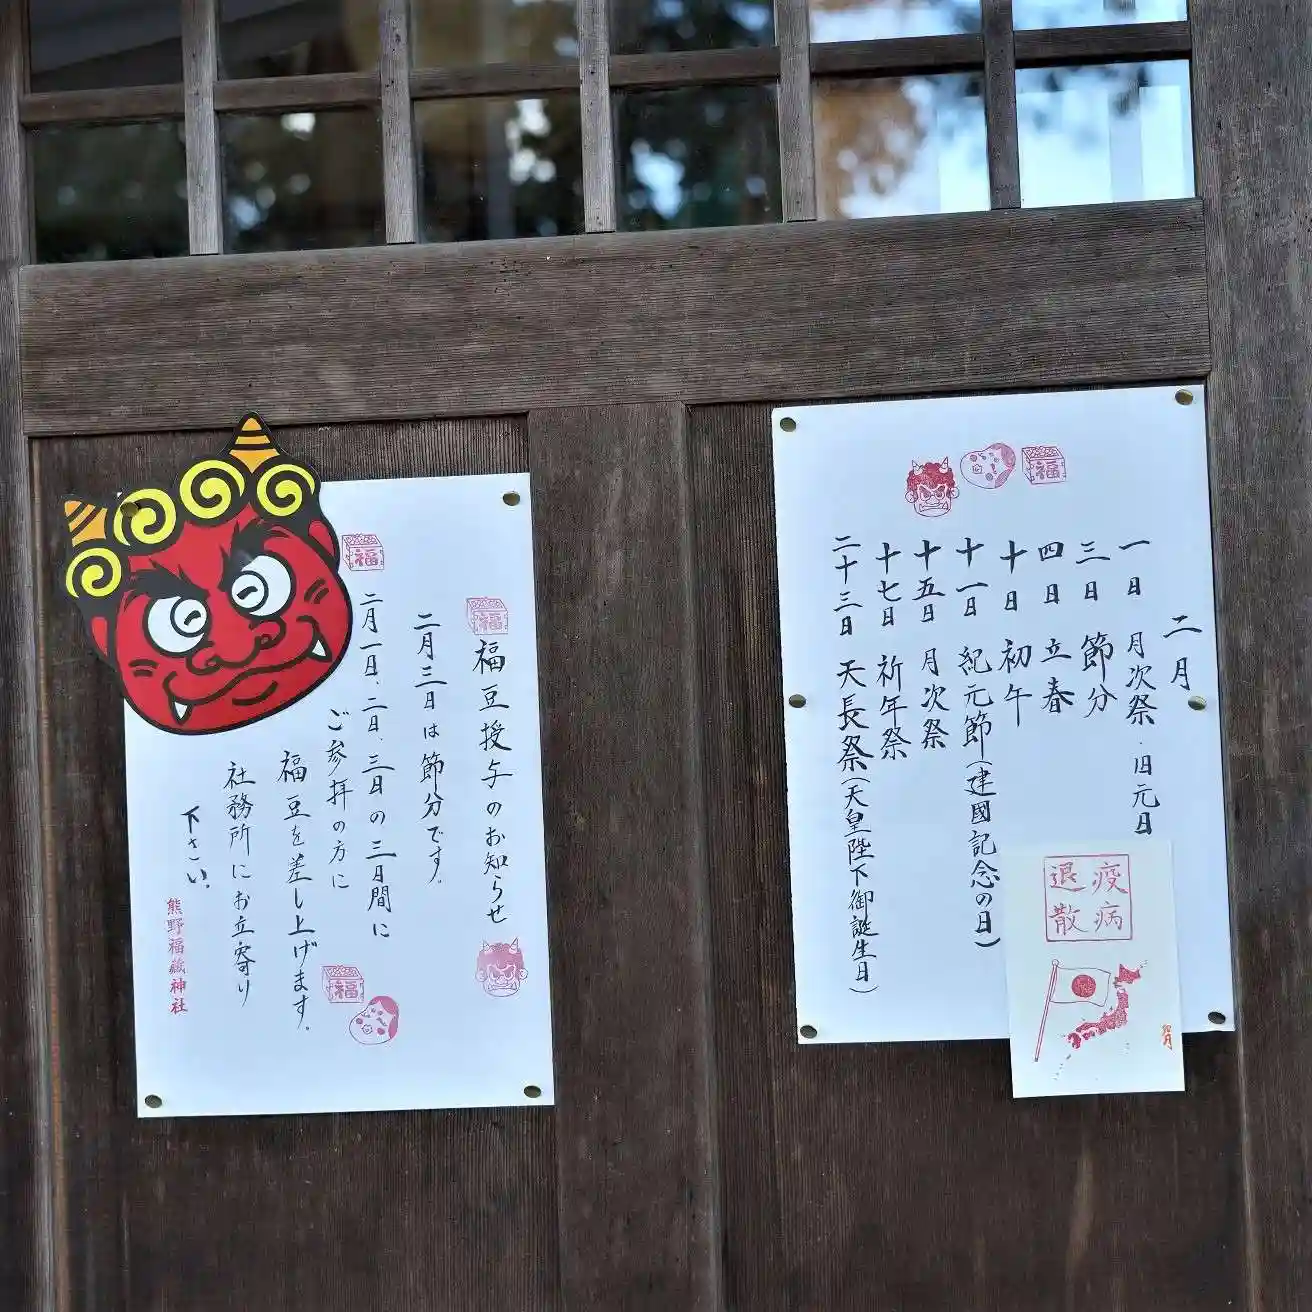 二月
一日 月次祭・旧元日
三日 節分
四日 立春
十日 初午
十一日 紀元節(建國記念の日)
十五日 月次祭
十七日 祈年祭
二十三日 天長祭(天皇陛下御誕生日)
福
疫病
退散
福
福豆授与のお知らせ
二月三日は節分です。
福
二月一日、二日、三日の三日間に
ご参拝の方に
福豆を差し上げます。
社務所にお立寄り
下さい。
福
熊野福藏神社